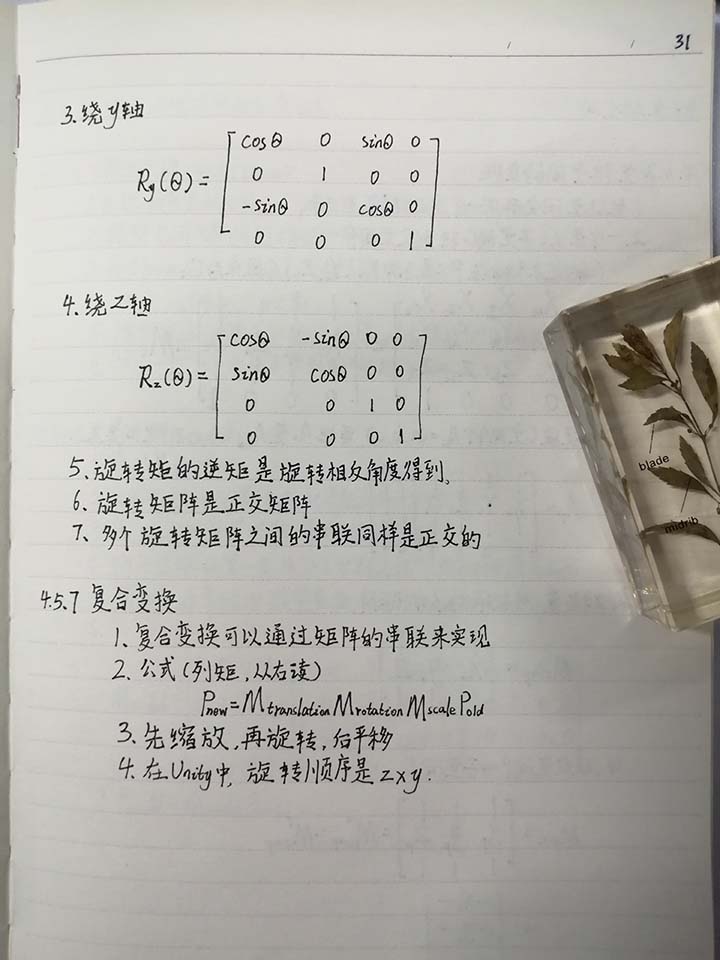 31
3.绕y轴
Ry(θ)=
cosθ 0 sinθ 0
0 1 0 0
-sinθ 0 cosθ 0
0 0 0 1
4.绕Z轴
Rz(θ)=
cosθ -sinθ 0 0
sinθ cosθ 0 0
0 0 1 0
0 0 0 1
5、旋转矩的逆矩是旋转相反角度得到。
6、旋转矩阵是正交矩阵
7、多个旋转矩阵之间的串联同样是正交的
4.5.7 复合变换
1、复合变换可以通过矩阵的串联来实现
2、公式(列矩,从右读)
Pnew=MtranslationMrotationMscalePold
3、先缩放,再旋转,后平移
4、在Unity中,旋转顺序是zxy.
blade
midrib